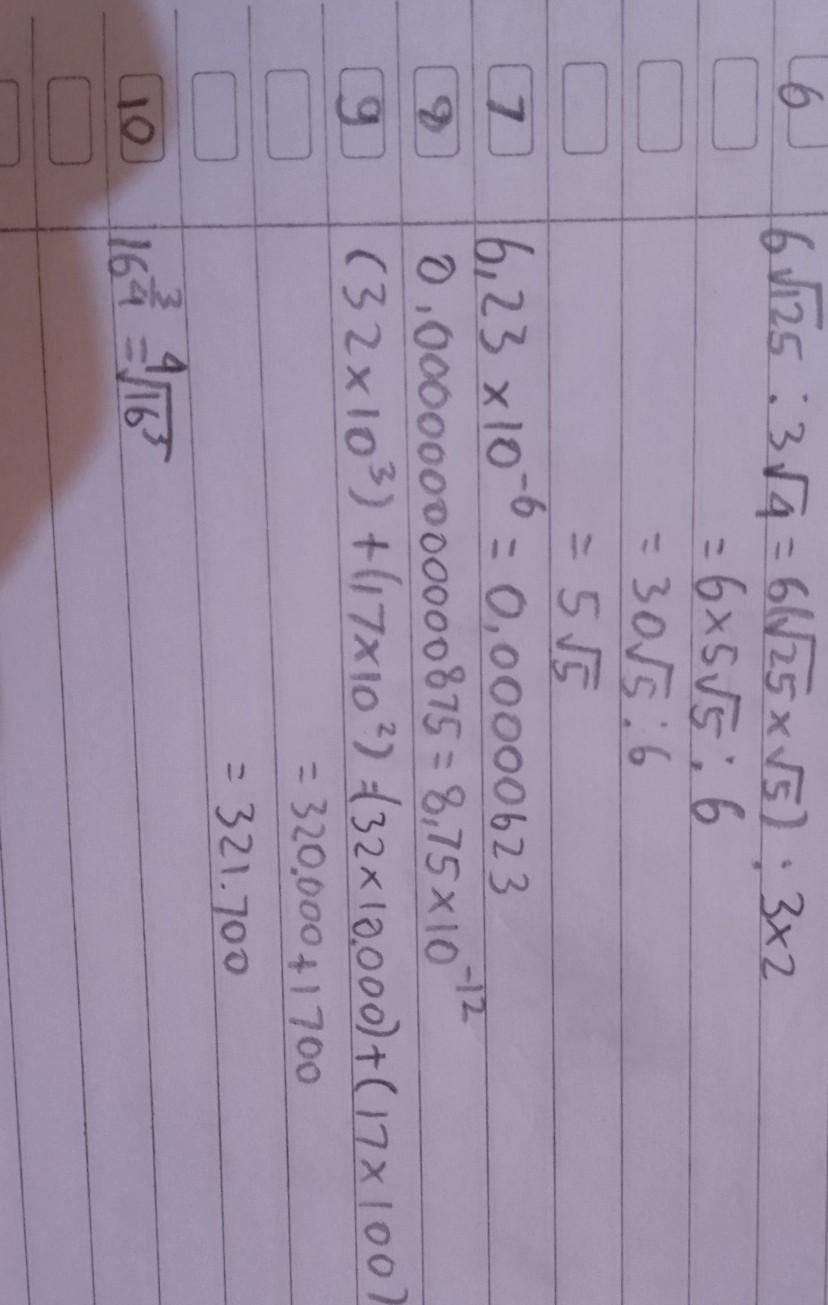 6 6√125 : 3√4 = 6(√25 × √5) : 3×2
= 6×5√5 : 6
= 30√5 : 6
= 5√5
7 6,23 × 10⁻⁶ = 0,00000623
8 0,00000000000875 = 8,75 × 10⁻¹²
9 (32 × 10³) + (17 × 10²) = (32 × 10.000) + (17 × 100)
= 320.000 + 1700
= 321.700
10 16^(3/4) = ⁴√16³